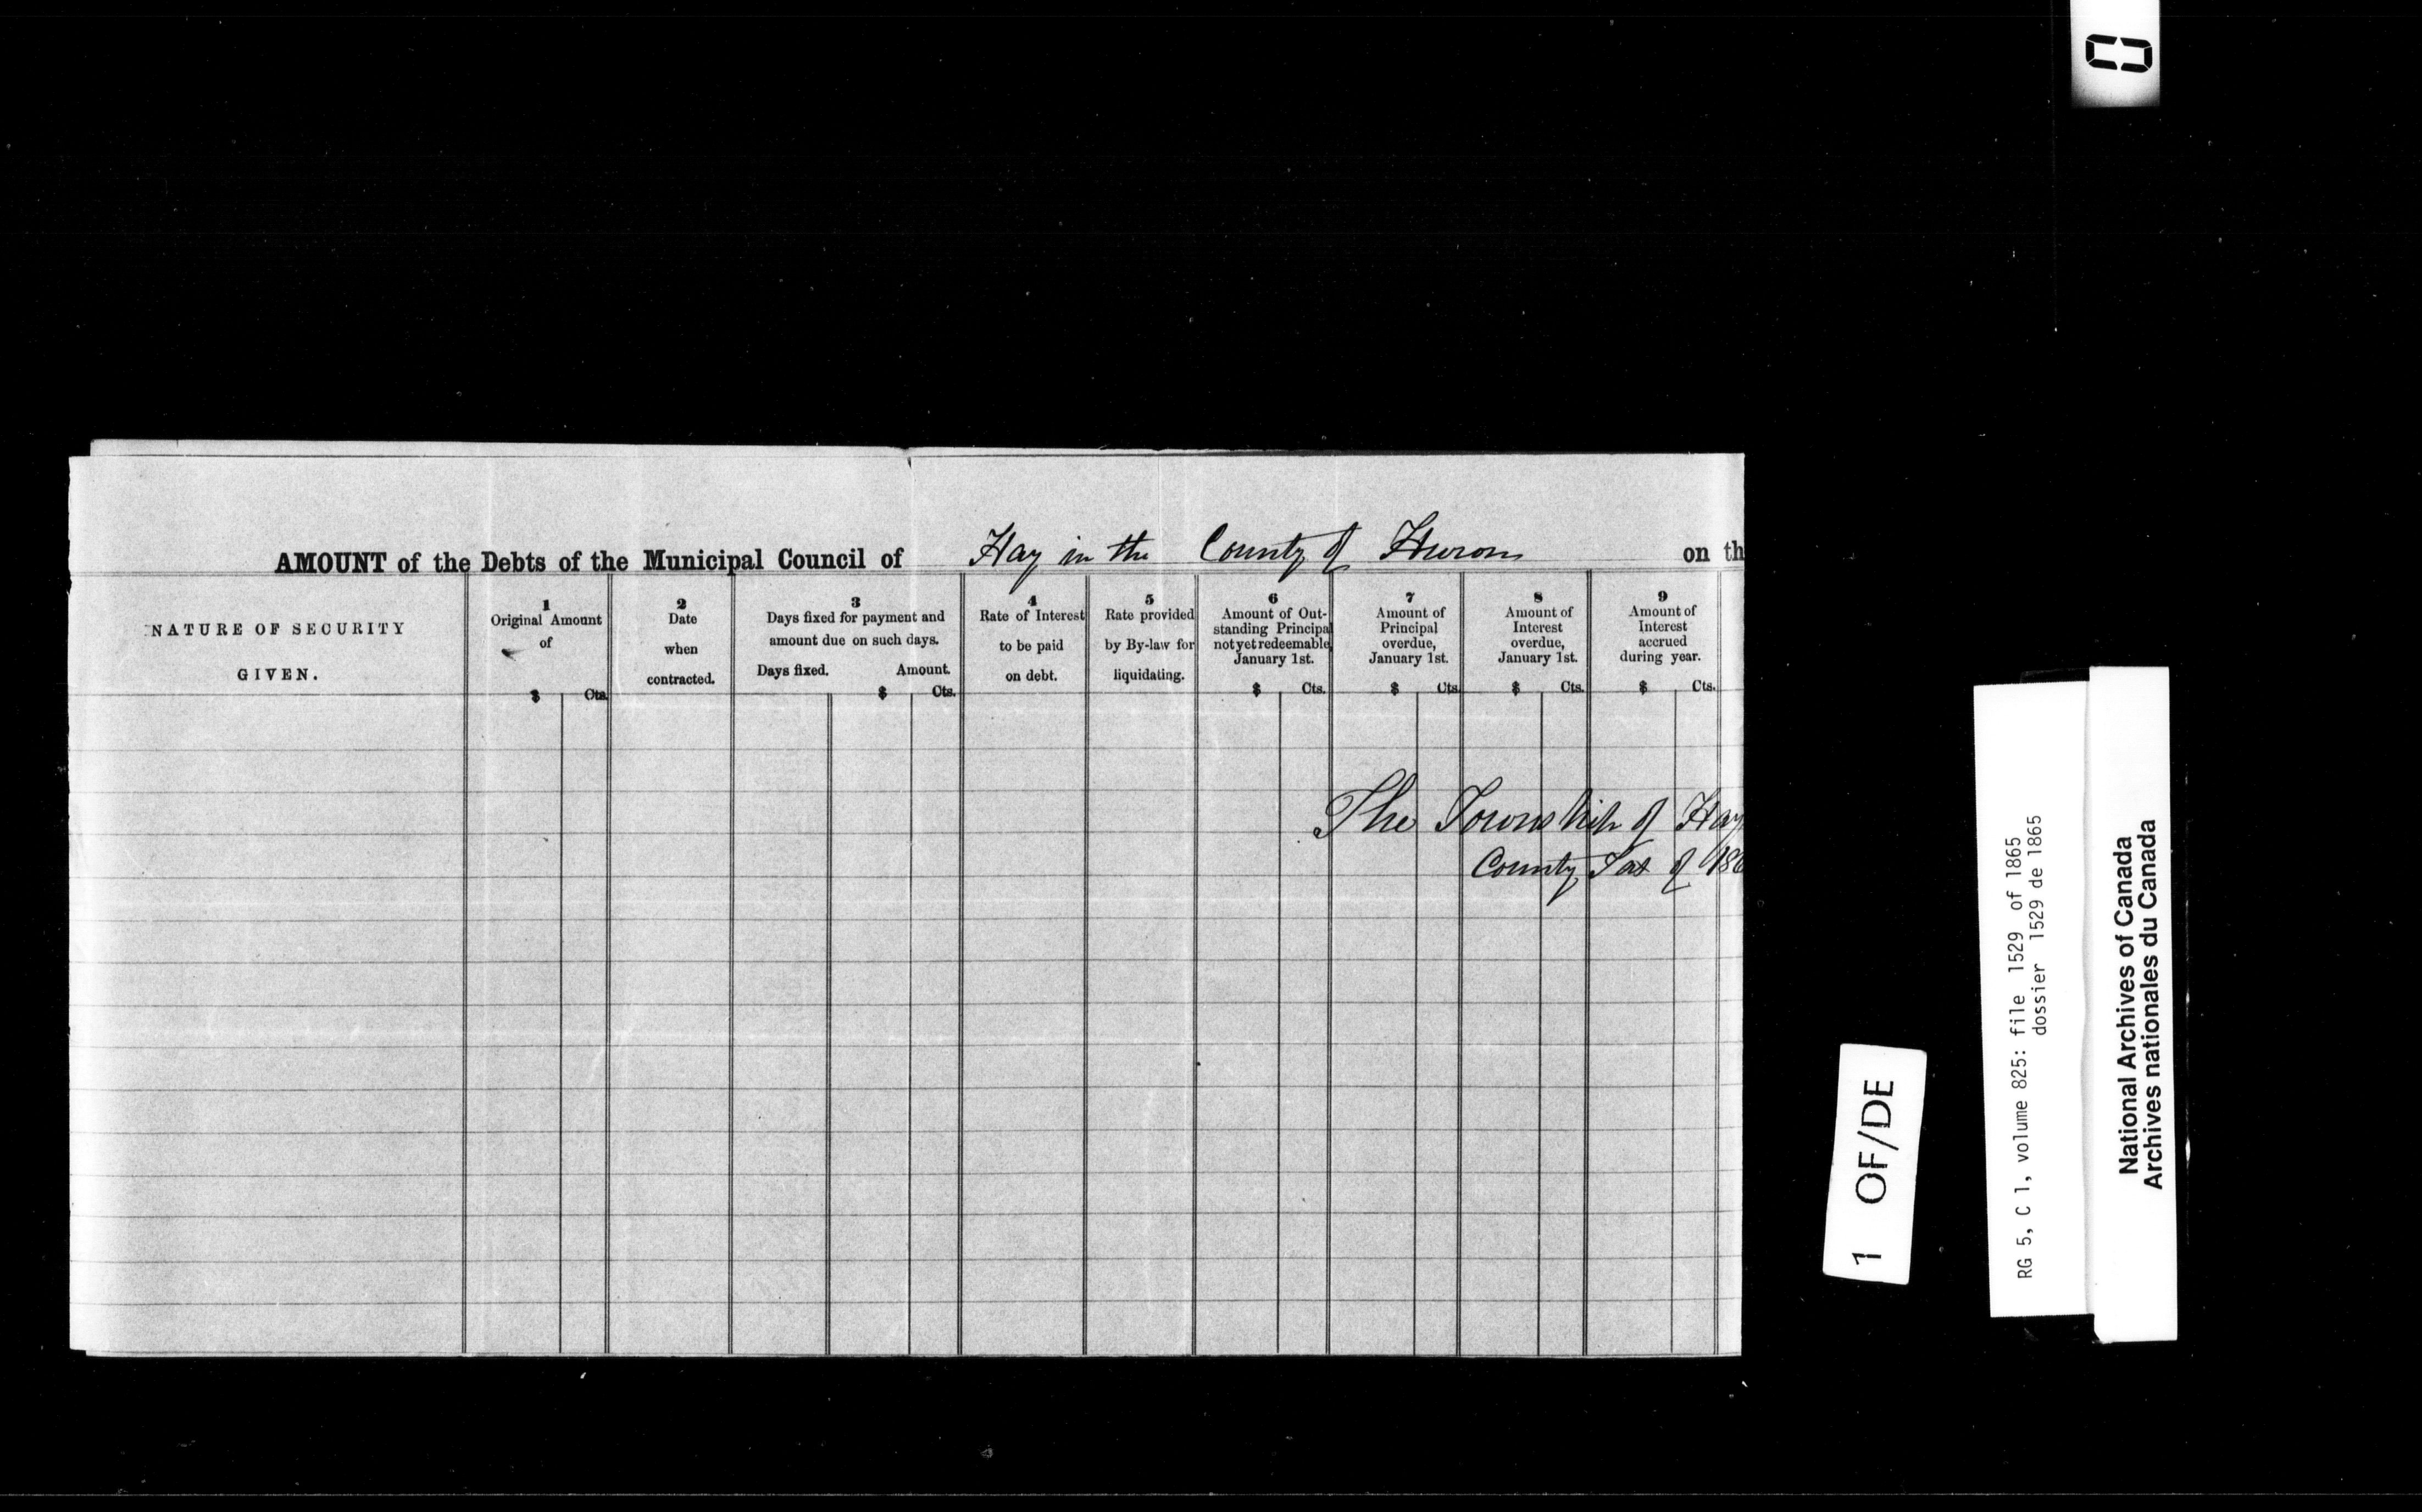 AMOUNT of the Debts of the Municipal Council of Hay in the County of Huron on th
NATURE OF SECURITY
GIVEN.
1
Original Amount
of
$ Cts.
2
Date
when
contracted.
3
Days fixed for payment and
amount due on such days.
Days fixed. Amount.
$ Cts.
4
Rate of Interest
to be paid
on debt.
5
Rate provided
by By-law for
liquidating.
6
Amount of Out-
standing Principal
not yet redeemable
January 1st.
$ Cts.
7
Amount of
Principal
overdue,
January 1st.
$ Cts.
8
Amount of
Interest
overdue,
January 1st.
$ Cts.
9
Amount of
Interest
accrued
during year.
$ Cts.
The Township of Hay
County Tax of 186
1 OF/DE
RG 5, C 1, volume 825: file 1529 of 1865
dossier 1529 de 1865
National Archives of Canada
Archives nationales du Canada
0